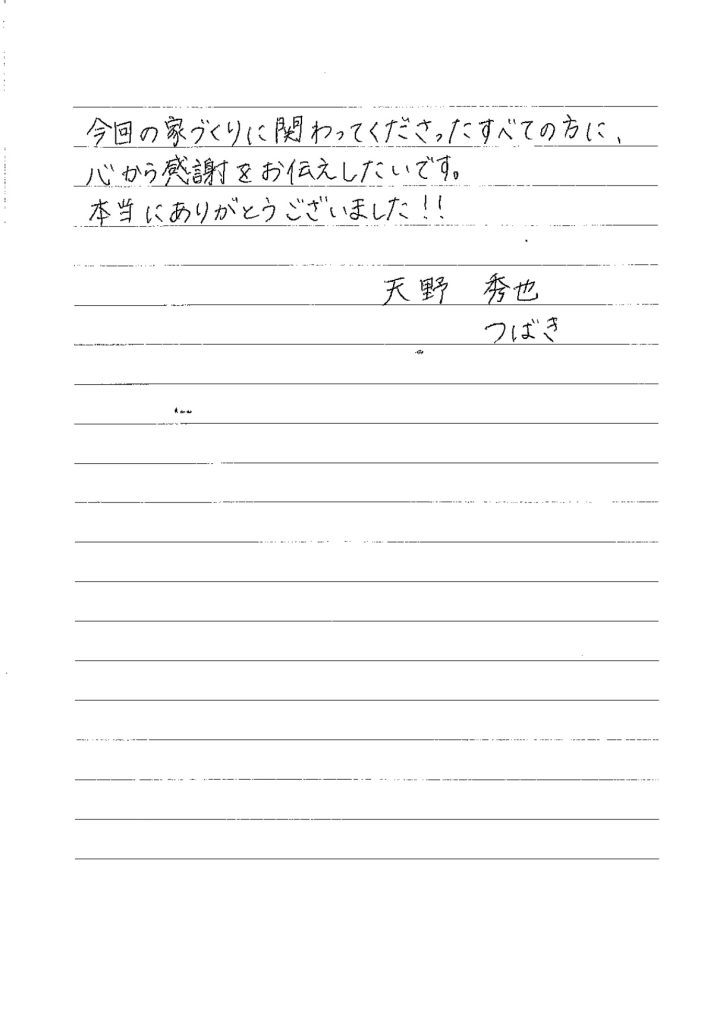 今回の家づくりに関わってくださったすべての方に、
心から感謝をお伝えしたいです。
本当にありがとうございました!!
天野 秀也
つばき